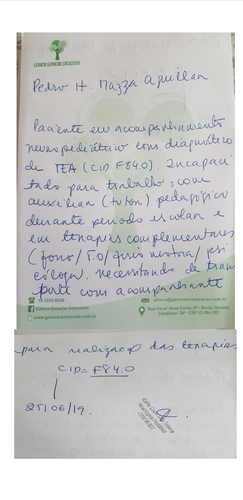 CLÍNICA GERAÇÃO CRESCENTE
Pedro H. Mazza Aguillar
Paciente em acompanhamento
neuropediátrico com diagnóstico
de TEA (CID F84.0). Incapaci
tado para trabalho, com
auxiliar (tutor) pedagógico
durante período escolar e
em terapias complementares
(fono/T.O/psicomotra/psi
cóloga. necessitando de trans
porte com acompanhante
Clínica Geração Crescente
www.geracaocrescente.com.br
clinica@geracaocrescente.com.br
para realização das terapias
CID = F84.0
25/06/19.